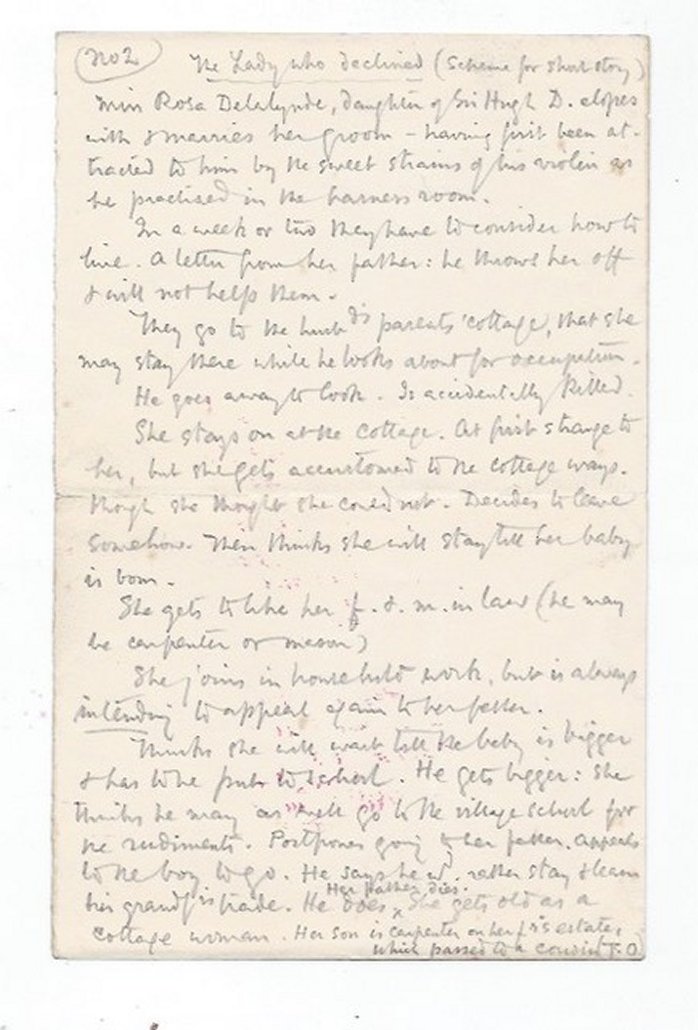 No 2
The Lady who declined (Scheme for short story)
Miss Rosa Delalynde, daughter of Sir Hugh D. elopes
with & marries her groom – having first been at-
tracted to him by the sweet strains of his violin as
he practised in the harness room.
In a week or two they have to consider how to
live. A letter from her father: he throws her off
& will not help them.
They go to the husbd's parents' cottage, that she
may stay there while he looks about for occupation.
He goes away to look. Is accidentally killed.
She stays on at the cottage. At first strange to
her, but she gets accustomed to the cottage ways.
though she thought she could not. Decides to leave
somehow. Then thinks she will stay till her baby
is born.
She gets to like her f. & m. in law (he may
be carpenter or mason)
She joins in household work, but is always
intending to appeal again to her father.
Thinks she will wait till the baby is bigger
& has to be put to school. He gets bigger: she
thinks he may as well go to the village school for
the rudiments. Postpones going to her father. Appeals
to the boy to go. He says he wd. rather stay & learn
Her father dies.
his grandf's trade. He does. She gets old as a
cottage woman. Her son is carpenter on her f's estate,
which passed to a cousin T.O